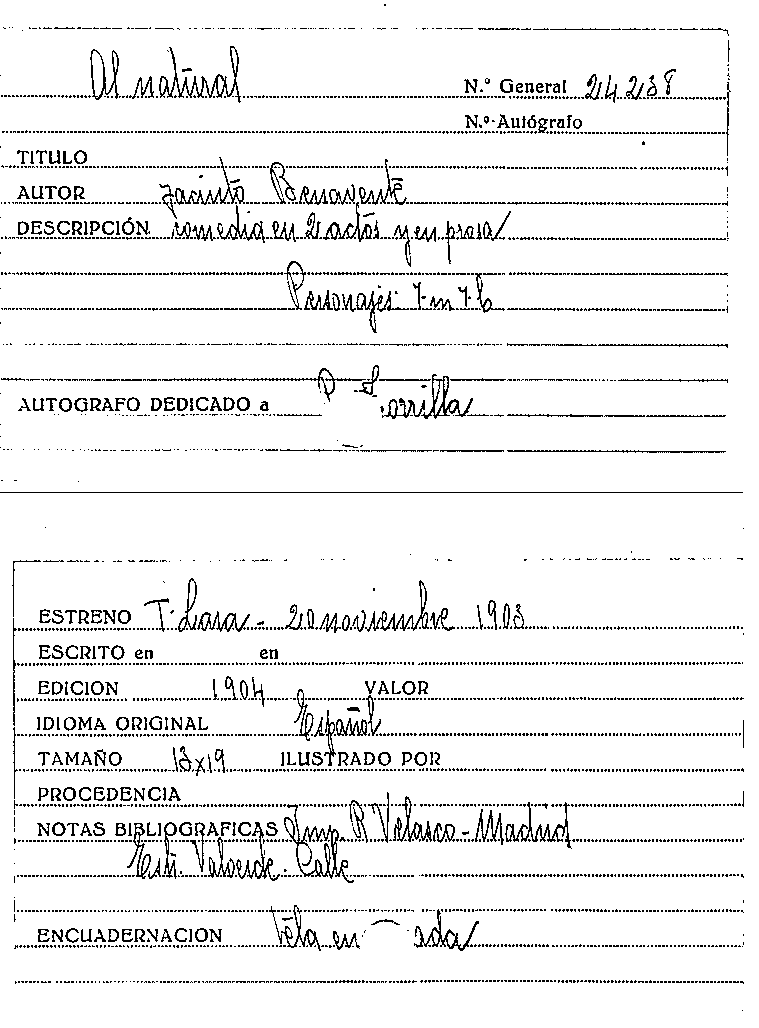 Al natural
N.º General 24238
N.º Autógrafo
TITULO
AUTOR Jacinto Benavente
DESCRIPCIÓN comedia en 2 actos y en prosa
Personajes: 7-m 7-h
AUTOGRAFO DEDICADO a
ESTRENO T. Lara - 20 noviembre 1903
ESCRITO en en
EDICION 1904 VALOR
IDIOMA ORIGINAL Español
TAMAÑO 13x19 ILUSTRADO POR
PROCEDENCIA
NOTAS BIBLIOGRAFICAS Imp. R Velasco - Madrid
Valverde. Calle
ENCUADERNACION Tela en